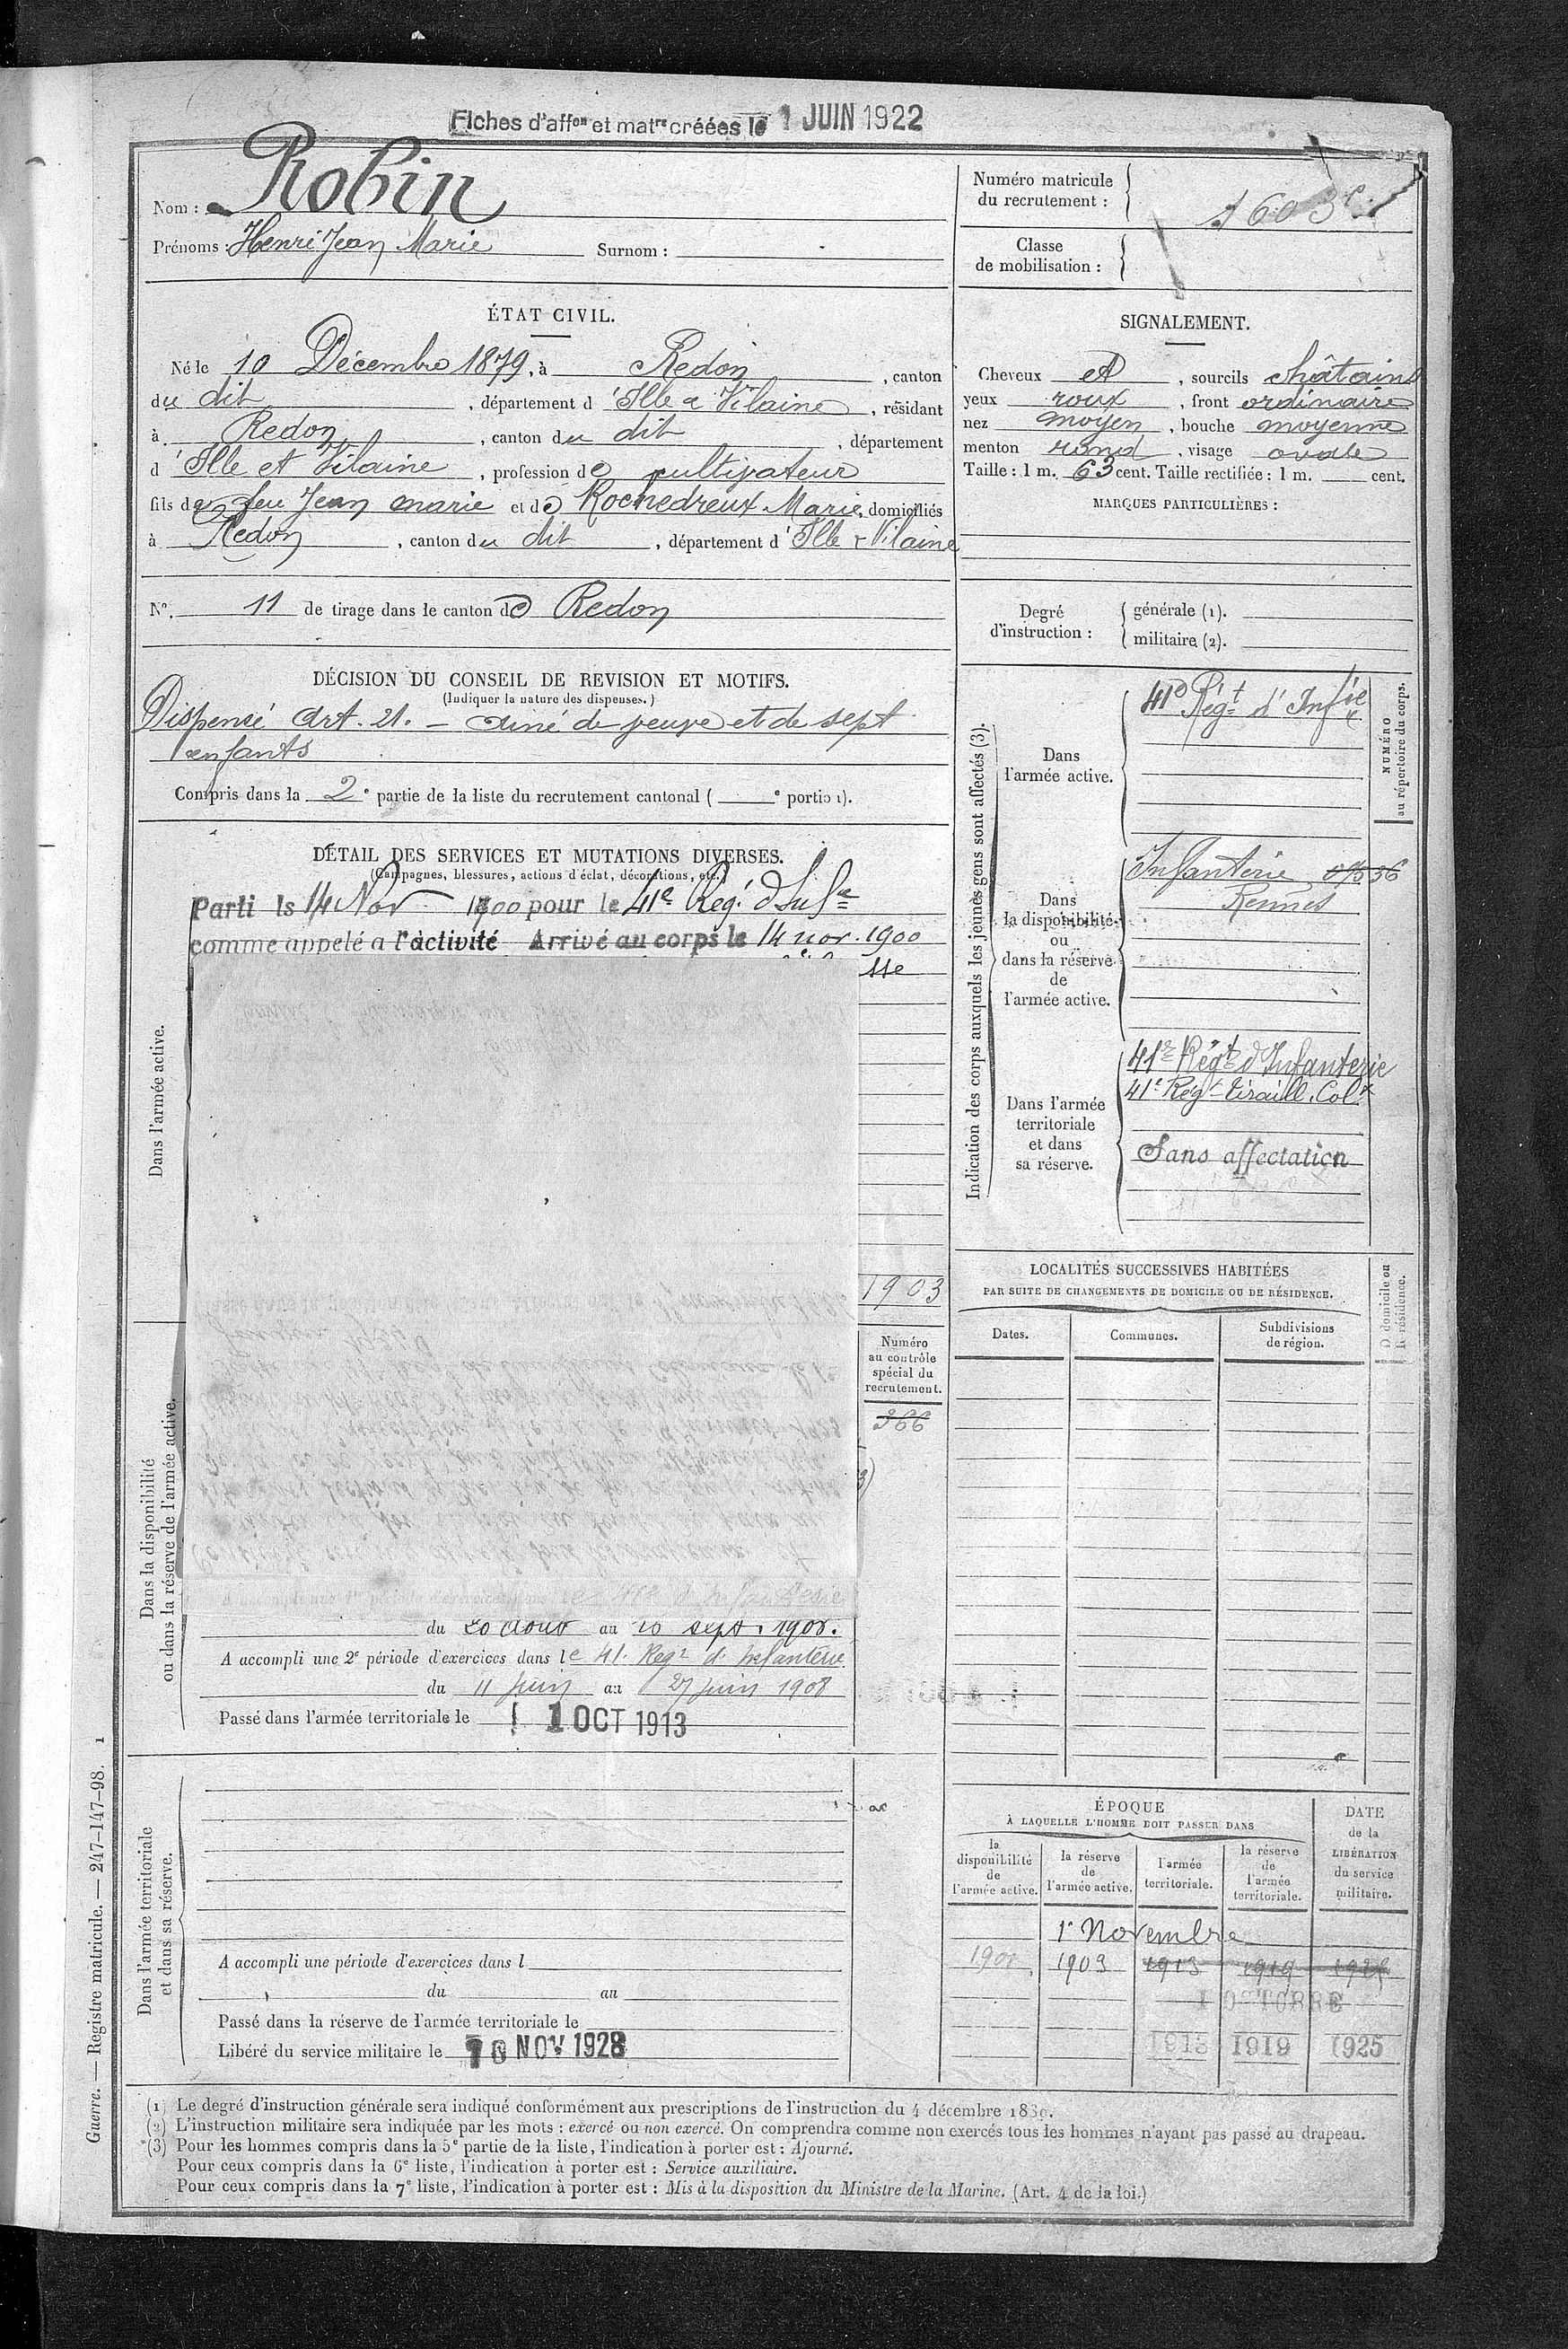 Fiches d'affon et matre créées le 1 JUIN 1922
Nom : Robin
Prénoms : Henri Jean Marie Surnom :
Numéro matricule
du recrutement : 1603
Classe
de mobilisation :
ÉTAT CIVIL.
Né le 10 Décembre 1879, à Redon, canton
du dit, département d'Ille & Vilaine, résidant
à Redon, canton du dit, département
d'Ille et Vilaine, profession de cultivateur
fils de feu Jean marie et de Rochedreux Marie, domiciliés
à Redon, canton du dit, département d'Ille & Vilaine
No. 11 de tirage dans le canton de Redon
SIGNALEMENT.
Cheveux et, sourcils châtains
yeux roux, front ordinaire
nez moyen, bouche moyenne
menton rond, visage ovale
Taille : 1 m. 63 cent. Taille rectifiée : 1 m. cent.
MARQUES PARTICULIÈRES :
Degré
d'instruction :
générale (1).
militaire (2).
DÉCISION DU CONSEIL DE REVISION ET MOTIFS.
(Indiquer la nature des dispenses.)
Dispensé Art. 21. — Ainé de veuve et de sept
enfants
Compris dans la 2e partie de la liste du recrutement cantonal ( e portion).
DÉTAIL DES SERVICES ET MUTATIONS DIVERSES.
(Campagnes, blessures, actions d'éclat, décorations, etc.)
Dans l'armée active.
Parti le 14 Nov 1900 pour le 41e Rég. d'Infie
comme appelé à l'activité Arrivé au corps le 14 nov. 1900
sse
1903
Dans la disponibilité
ou dans la réserve de l'armée active.
Numéro
au contrôle
spécial du
recrutement.
366
du 20 Aout au 10 sept. 1905.
A accompli une 2e période d'exercices dans le 41. Régt d'Infanterie
du 11 juin au 27 juin 1908
Passé dans l'armée territoriale le 1 OCT 1913
Dans l'armée territoriale
et dans sa réserve.
A accompli une période d'exercices dans l
du au
Passé dans la réserve de l'armée territoriale le
Libéré du service militaire le 10 NOV 1928
Indication des corps auxquels les jeunes gens sont affectés (3).
NUMÉRO
au répertoire du corps.
Dans
l'armée active.
41e Régt d'Infie
Dans
la disponibilité
ou
dans la réserve
de
l'armée active.
Infanterie
Rennes
Dans l'armée
territoriale
et dans
sa réserve.
41e Régt d'Infanterie
41e Régt tiraill. Colx
Sans affectation
LOCALITÉS SUCCESSIVES HABITÉES
PAR SUITE DE CHANGEMENTS DE DOMICILE OU DE RÉSIDENCE.
D domicile ou
R résidence.
Dates. Communes. Subdivisions
de région.
ÉPOQUE
À LAQUELLE L'HOMME DOIT PASSER DANS
la
disponibilité
de
l'armée active.
la réserve
de
l'armée active.
l'armée
territoriale.
la réserve
de
l'armée
territoriale.
DATE
de la
LIBÉRATION
du service
militaire.
1er Novembre
1903 1913 1919
1 OCTOBRE
1913 1919 1925
Guerre. — Registre matricule. — 247-147-98. 1
(1) Le degré d'instruction générale sera indiqué conformément aux prescriptions de l'instruction du 4 décembre 1889.
(2) L'instruction militaire sera indiquée par les mots : exercé ou non exercé. On comprendra comme non exercés tous les hommes n'ayant pas passé au drapeau.
(3) Pour les hommes compris dans la 5e partie de la liste, l'indication à porter est : Ajourné.
Pour ceux compris dans la 6e liste, l'indication à porter est : Service auxiliaire.
Pour ceux compris dans la 7e liste, l'indication à porter est : Mis à la disposition du Ministre de la Marine. (Art. 4 de la loi.)